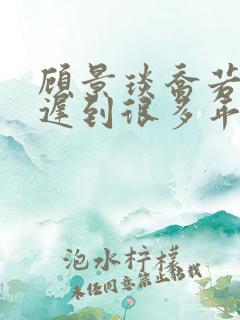 顾景琰乔若
迟到很多年
泡水柠檬
未经同意禁止转载